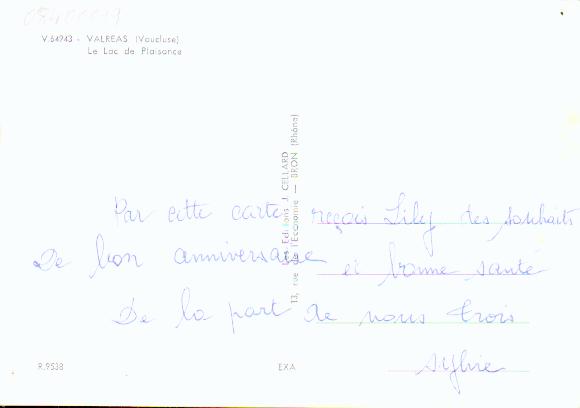 V.64943 - VALREAS (Vaucluse)
Le Lac de Plaisance
Les Editions J. CELLARD
13, rue de l'Economie — BRON (Rhône)
Par cette carte reçois Lily des souhaits
De bon anniversaire et bonne santé
De la part de nous trois
Sylvie
R.9538
EXA